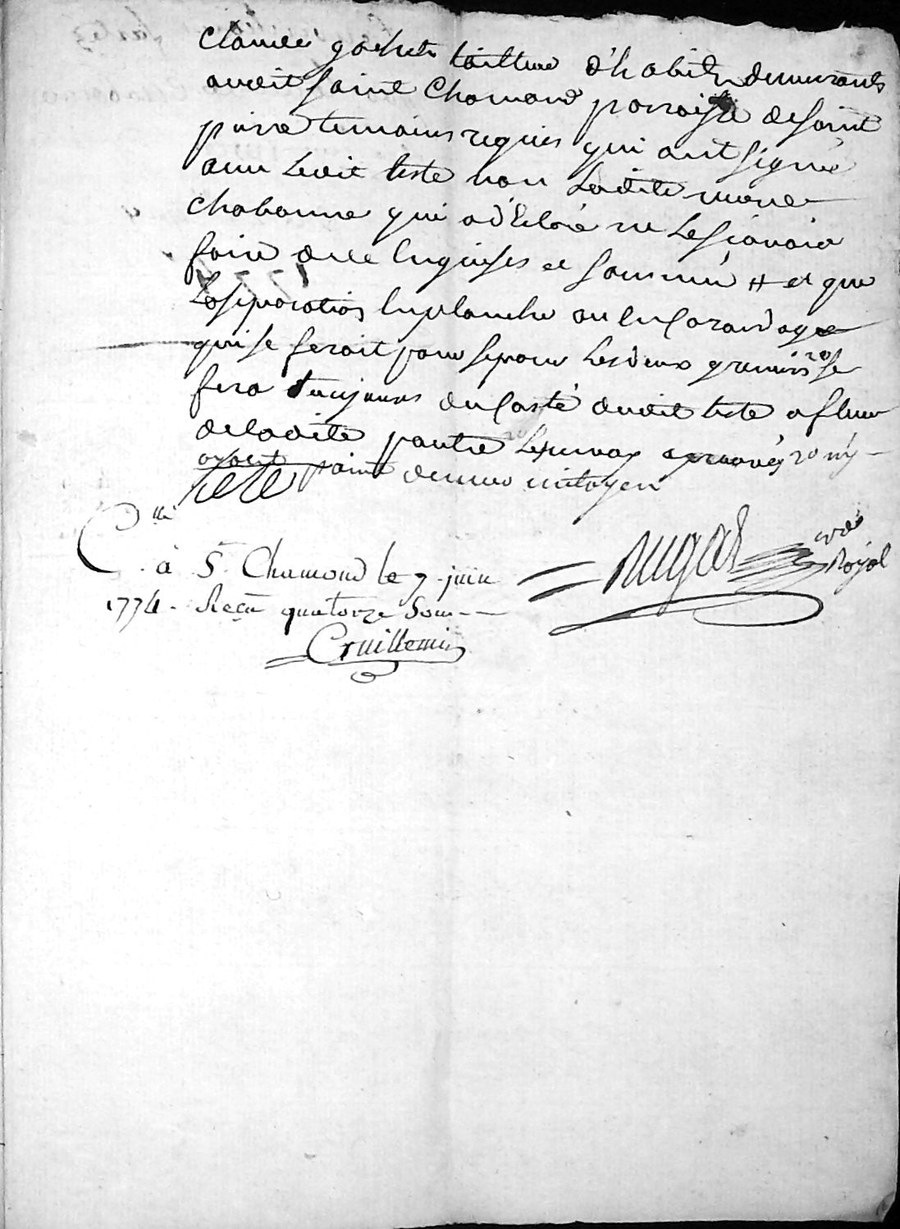 Claude gachet tailleur d'habits demeurants
audit saint Chamond parroisse de saint
pierre temoins requis qui ont signé
avec ledit teste non ladite marie
chabanne qui a déclaré ne le sçavoir
faire de ce enquises et sommée # et que
la separation en planche ou en
qui se ferait pour separer les deux greniers se
fera toujours du costé dudit teste a fleur
de ladite poutre
ayant point de mur mitoyen
teste
dugas
Royal
Clle
à St Chamond le 7 juin
1774. Reçu quatorze sous
Cruillemin